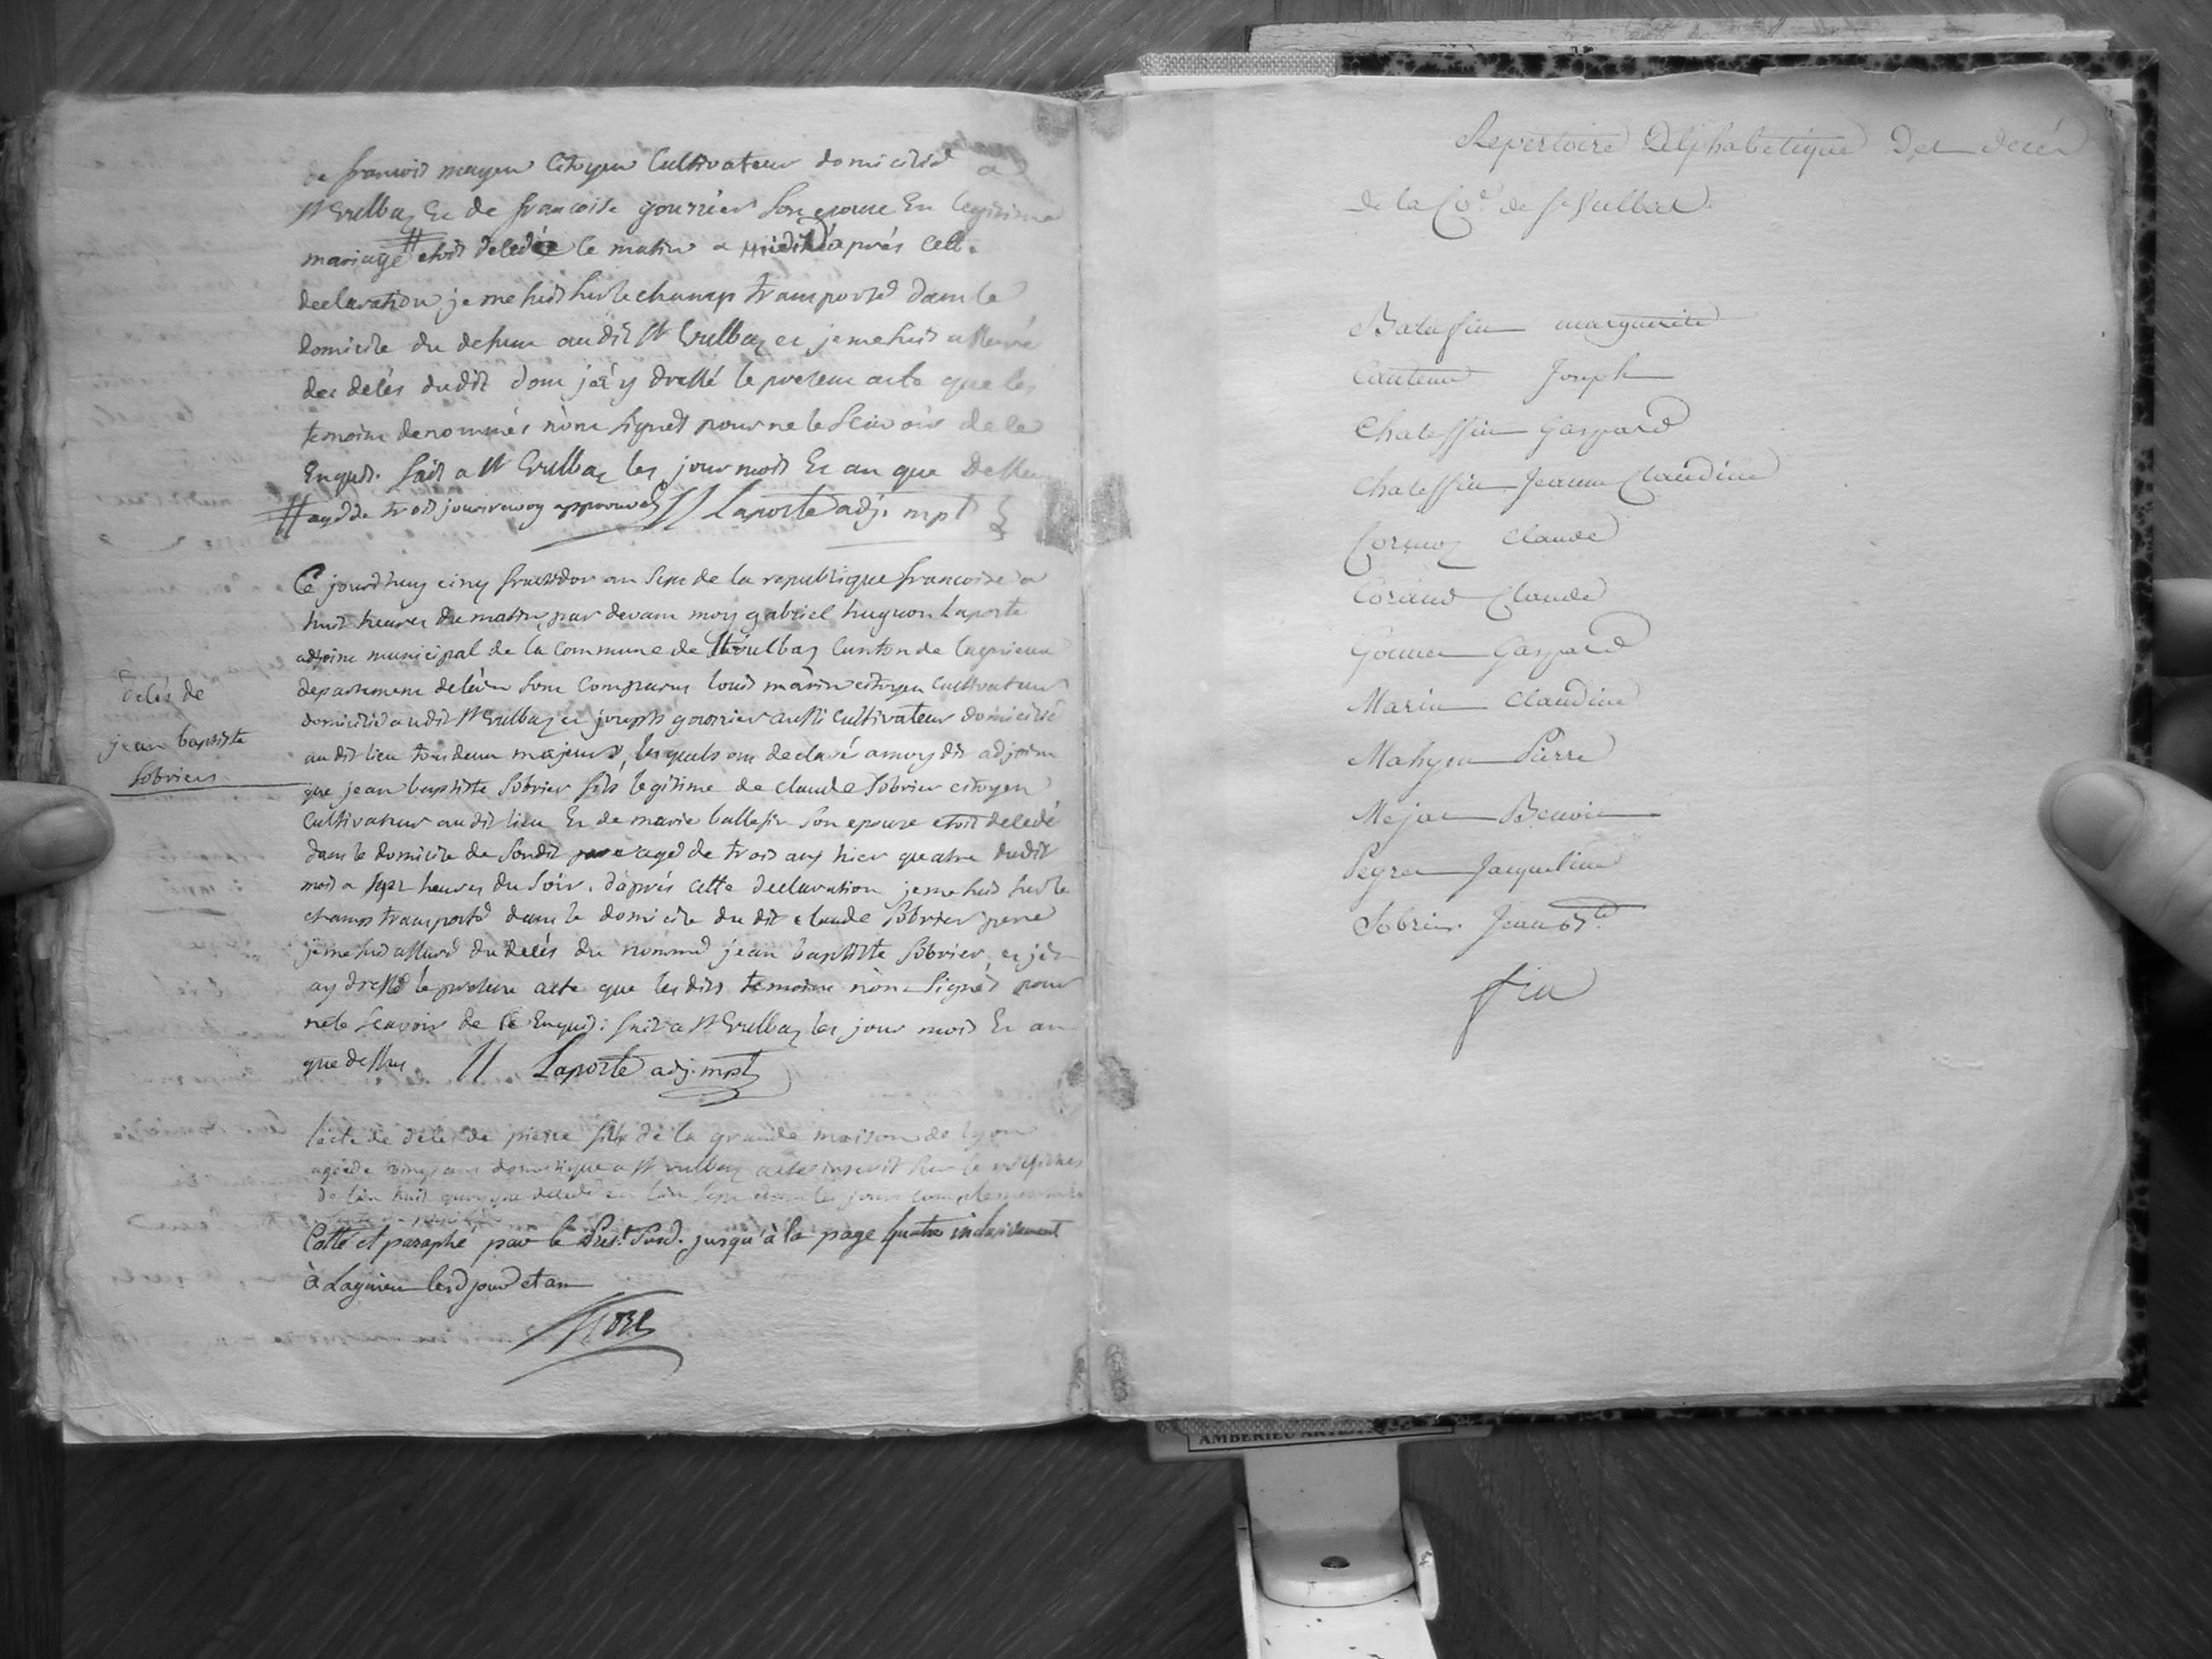 de francois mayen citoyen Cultivateur domicilié a
St Vulbaz Et de francoise gourrier Son epouse En legitime
mariage # etoit decedée le matin a midi d'après cette
declaration je me suis sur le champ transporté dans le
domicile du defunt audit St Vulbaz et je me suis assuré
du decés dudit dont j'ai y dressé le present acte que les
temoins denommés n'ont signés pour ne le Scavoir de ce
Enquis. fait a St Vulbaz les jour mois Et an que Dessus
# agé de trois jours renvoy approuvé // Laporte adj. mpl
Ce jourd'huy cinq fructidor an Sept de la republique francoise a
huit heures du matin, par devant moy gabriel huguon Laporte
adjoint municipal de la Commune de St Vulbaz Canton de lagnieux
departement de l'ain Sont Comparus louis marin citoyen Cultivateur
domicilié audit St Vulbaz et joseph gourrier aussi Cultivateur domicilié
audit lieu tous deux majeurs, lesquels ont declaré a moy dit adjoint
que jean baptiste Sobrier fils legitime de claude Sobrier citoyen
Cultivateur audit lieu Et de marie ballefin Son epouse etoit decedé
dans le domicile de Sondit pere agé de trois ans hier quatre dudit
mois a Sept heures du Soir. d'après cette declaration je me suis sur le
champ transporté dans le domicile du dit claude Sobrier pere
je me suis assuré du decés du nommé jean baptiste Sobrier, et j'en
ay dressé le present acte que les dits temoins n'ont Signés pour
ne le Scavoir de ce Enquis: fait a St Vulbaz les jour mois Et an
que dessus // Laporte adj. mpl
decés de
jean baptiste
Sobriers
l'acte de decés de pierre fils de la grande maison de lyon
agé de vingt ans domestique a St vulbaz acte inscrit Sur le registres
de l'an huit quoyque decedé en l'an Sept dans les jours complementaires
Cotté et paraphé par le Prést. Susd. jusqu'à la page quatre inclusivement
à Lagnieu lesd jour et an
Repertoire Alphabetique Des decés
de la Co.e de St Vulbas
Balefin marguerite
Cauteur Joseph
Chaleffin Gaspard
Chaleffin Jeanne Claudine
Cormoz Claude
Coraud Claude
Gourier Gaspard
Marin Claudine
Mahyen Pierre
Mejat Benoit
Peyret Jacqueline
Sobrier Jean Bte
fin
AMBERIEU ARTISTIQUE